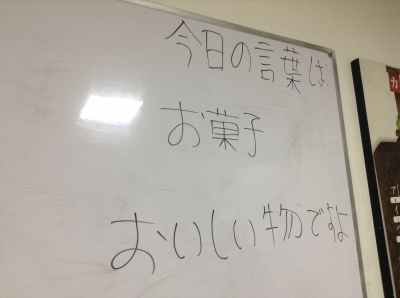 今日の言葉は
お菓子
おいしい物ですよ
カ